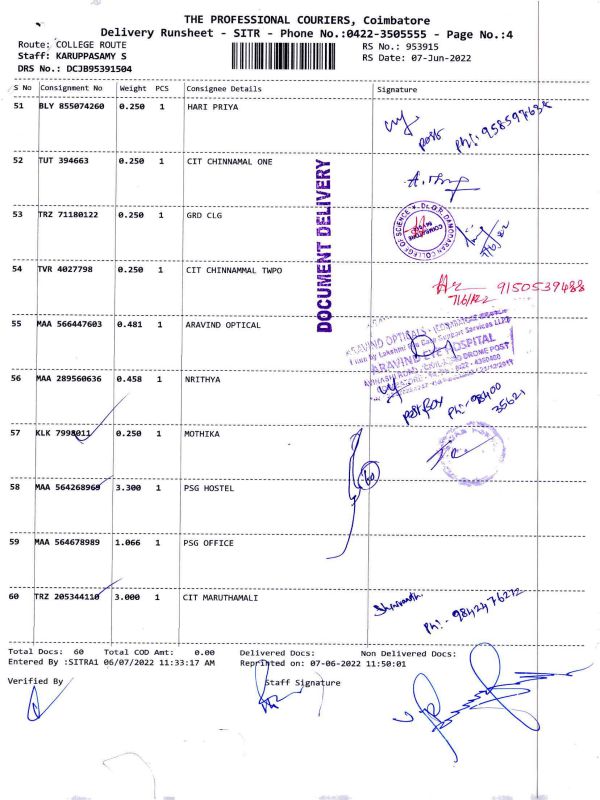 THE PROFESSIONAL COURIERS, Coimbatore
Delivery Runsheet - SITR - Phone No.:0422-3505555 - Page No.:4
Route: COLLEGE ROUTE
RS No.: 953915
Staff: KARUPPASAMY S
RS Date: 07-Jun-2022
DRS No.: DCJB95391504
S No Consignment No Weight PCS Consignee Details Signature
51 BLY 855074260 0.250 1 HARI PRIYA
post
52 TUT 394663 0.250 1 CIT CHINNAMAL ONE
DOCUMENT DELIVERY
53 TRZ 71180122 0.250 1 GRD CLG
7/6/22
54 TVR 4027798 0.250 1 CIT CHINNAMMAL TWPO
9150539488
55 MAA 566447603 0.481 1 ARAVIND OPTICAL
ARAVIND EYE HOSPITAL
56 MAA 289560636 0.458 1 NRITHYA
post box Ph:- 98400
35621
57 KLK 7998011 0.250 1 MOTHIKA
58 MAA 564268969 3.300 1 PSG HOSTEL
59 MAA 564678989 1.066 1 PSG OFFICE
60 TRZ 205344110 3.000 1 CIT MARUTHAMALI
Ph:- 9842476272
Total Docs: 60 Total COD Amt: 0.00 Delivered Docs: Non Delivered Docs:
Entered By :SITRA1 06/07/2022 11:33:17 AM Reprinted on: 07-06-2022 11:50:01
Verified By Staff Signature